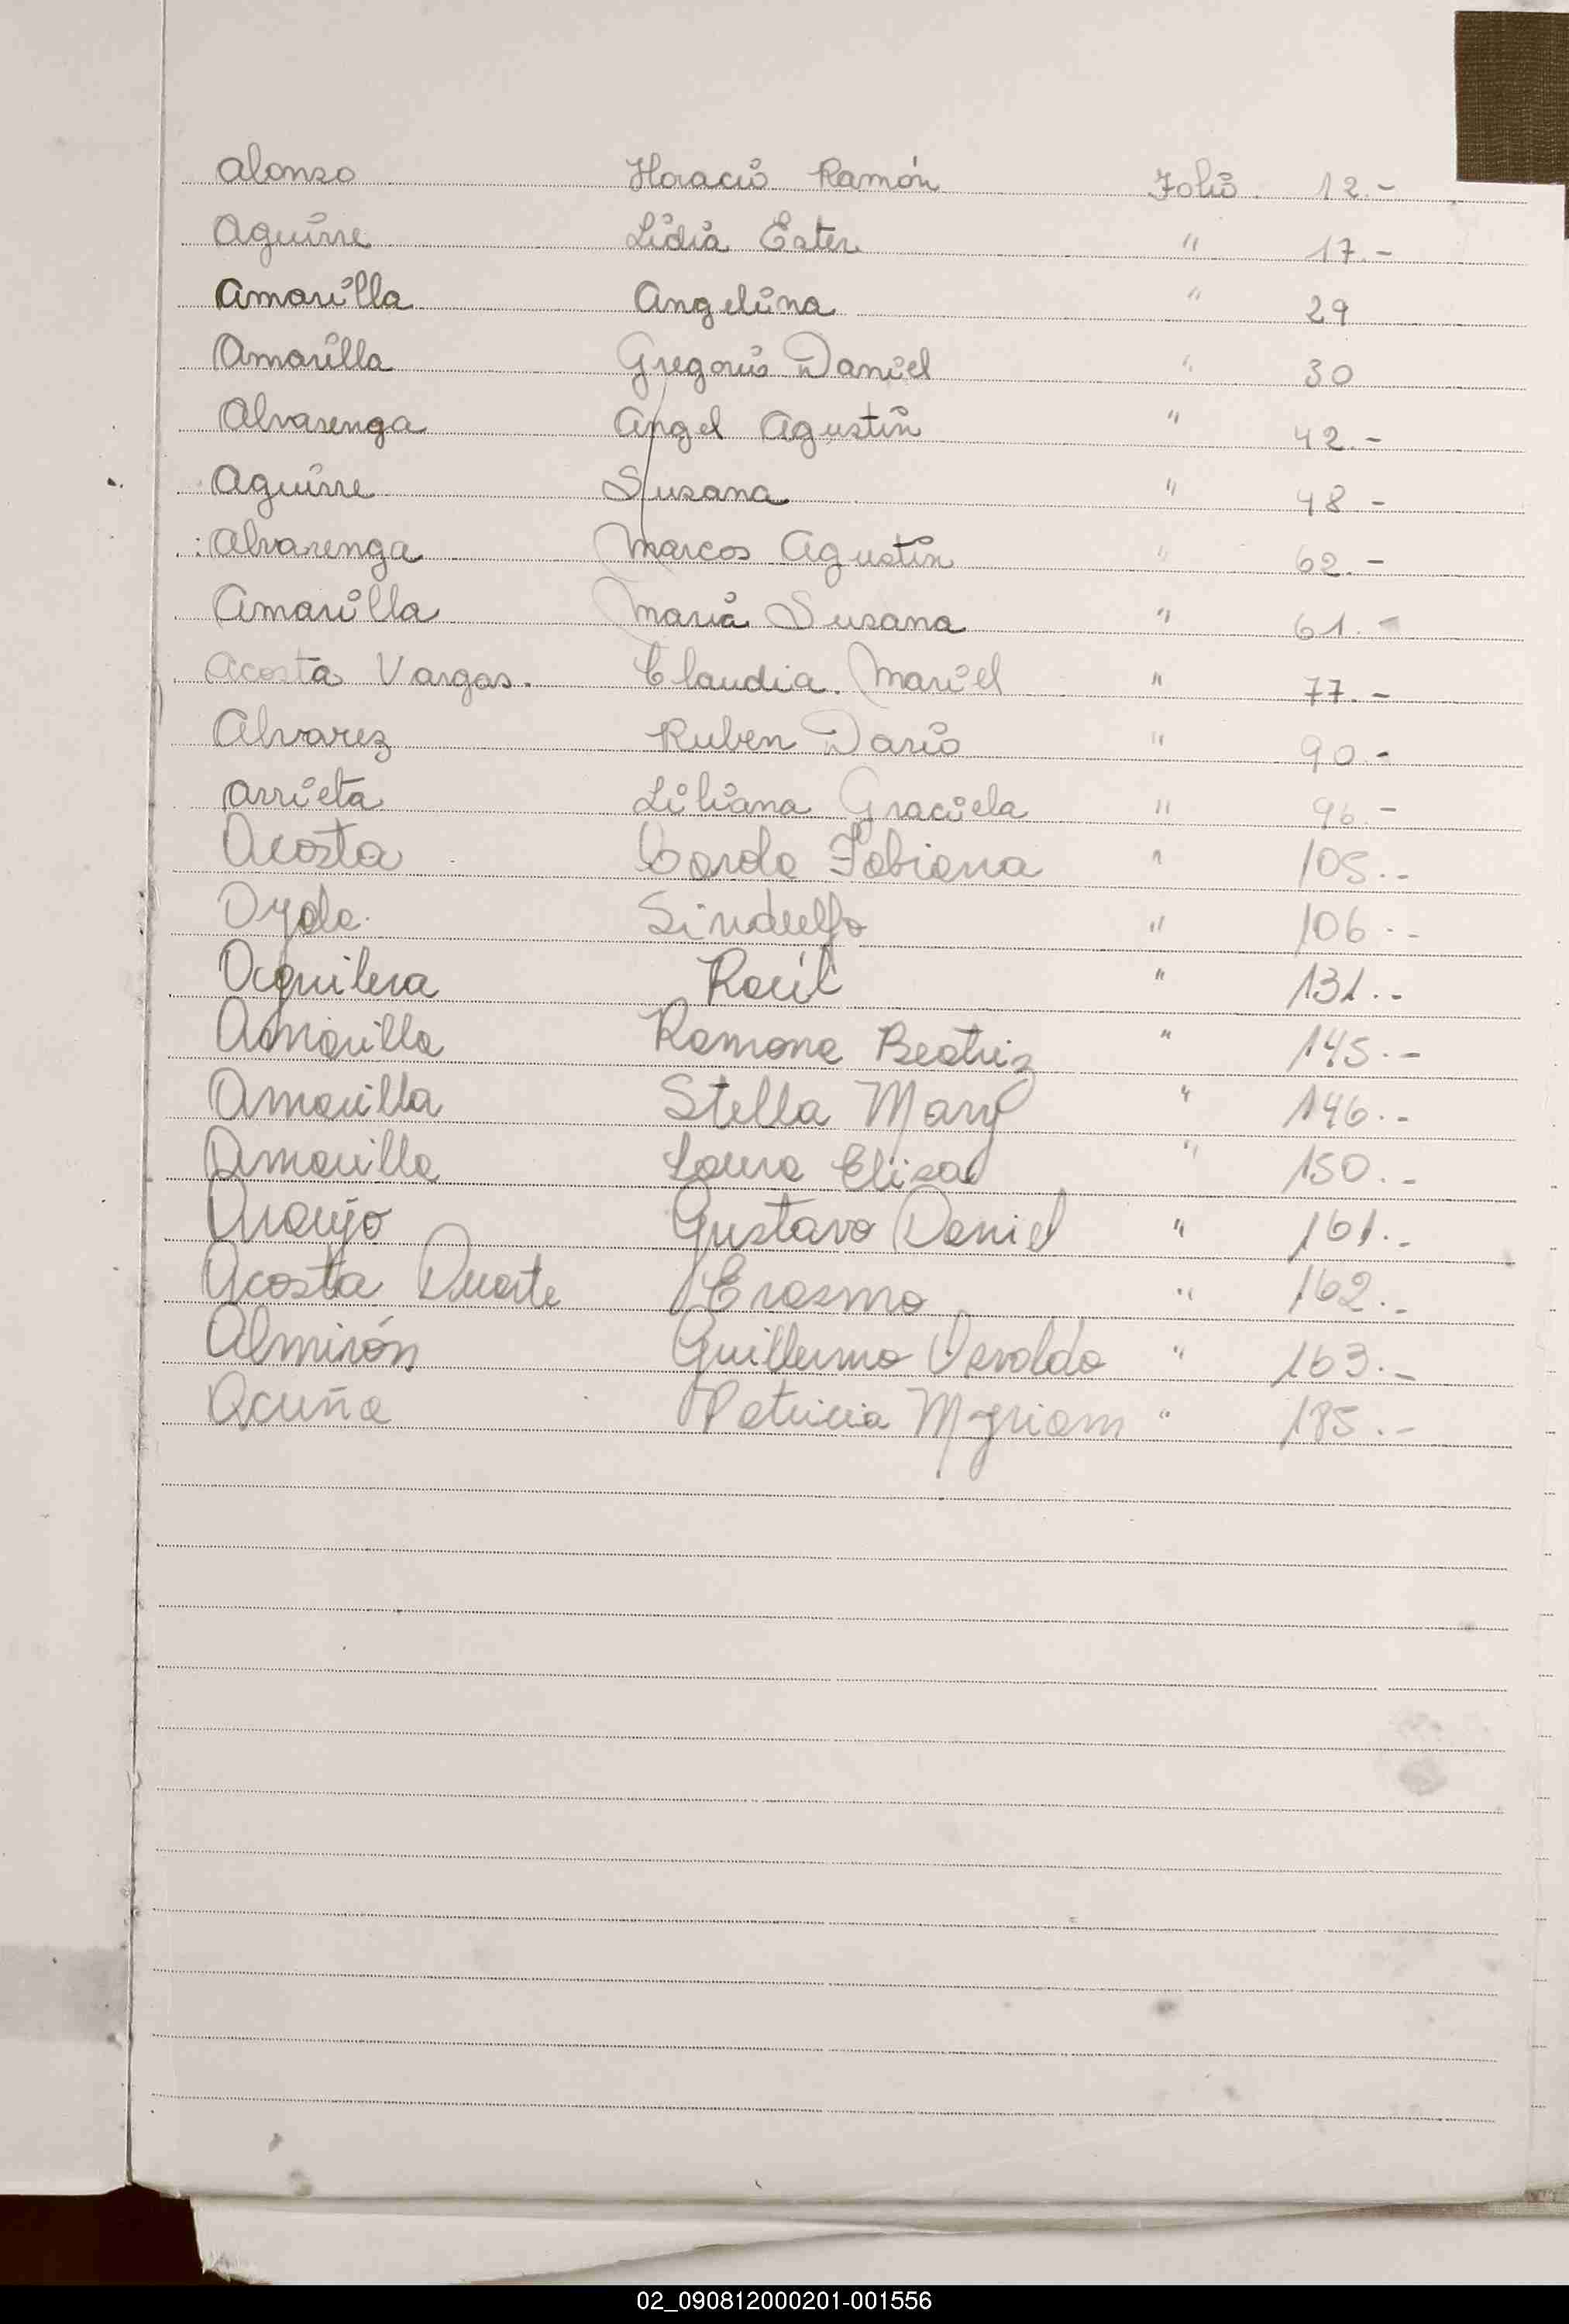 Alonso Horacio Ramón Folio 12.-
Aguirre Lidia Ester " 17.-
Amarilla Angelina " 29
Amarilla Gregorio Daniel " 30
Alvarenga Angel Agustin " 42.-
Aguirre Susana " 48.-
Alvarenga Marcos Agustin " 62.-
Amarilla Maria Susana " 61.-
Acosta Vargas. Claudia Mariel " 77.-
Alvarez Ruben Dario " 90.-
Arrieta Liliana Graciela " 96.-
Acosta Carola Fabiana " 105.-
Ayala Sindulfo " 106.-
Aguilera Raúl " 131.-
Amarilla Ramona Beatriz " 145.-
Amarilla Stella Mary " 146.-
Amarilla Laura Elisa " 150.-
Araujo Gustavo Daniel " 161.-
Acosta Duarte Erasmo " 162.-
Almirón Guillermo Osvaldo " 163.-
Acuña Patricia Myriam " 185.-
02_090812000201-001556